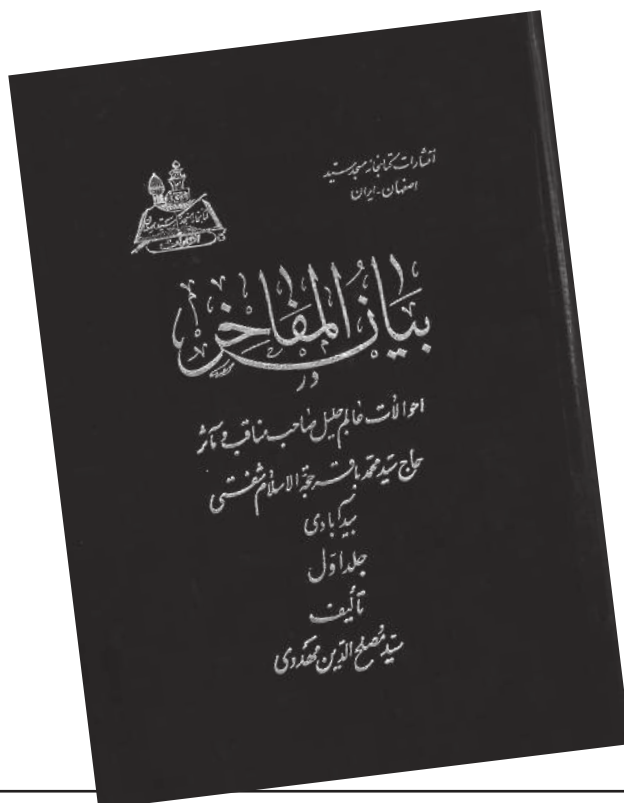 انتشارات کتابخانه مسجد سید
اصفهان - ایران
بیان المفاخر
در
احوالات عالم جلیل صاحب مناقب و مآثر
حاج سید محمد باقر حجة الاسلام شفتی
بیدآبادی
جلد اول
تألیف
سید مصلح الدین مهدوی